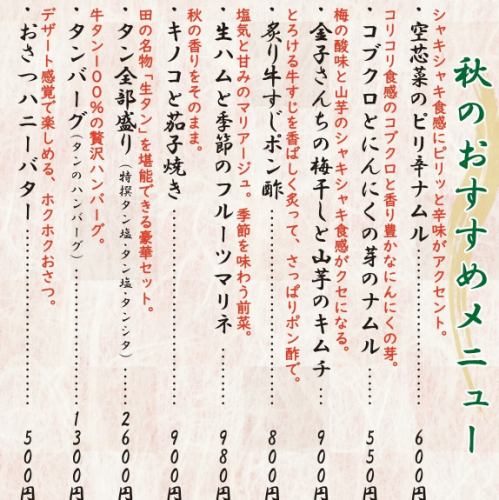 秋のおすすめメニュー
シャキシャキ食感にピリッと辛味がアクセント。
・空芯菜のピリ辛ナムル…………600円
コリコリ食感のコブクロと香り豊かなにんにくの芽。
・コブクロとにんにくの芽のナムル……550円
梅の酸味と山芋のシャキシャキ食感がクセになる。
・金子さんちの梅干しと山芋のキムチ……900円
とろける牛すじを香ばしく炙って、さっぱりポン酢で。
・炙り牛すじポン酢…………800円
塩気と甘みのマリアージュ。季節を味わう前菜。
・生ハムと季節のフルーツマリネ……980円
秋の香りをそのまま。
・キノコと茄子焼き…………900円
田の名物「生タン」を堪能できる豪華セット。
・タン全部盛り(特撰タン塩・タン塩・タンシタ)……2600円
牛タン100%の贅沢ハンバーグ。
・タンバーグ(タンのハンバーグ)…………1300円
デザート感覚で楽しめる、ホクホクおさつ。
・おさつハニーバター…………500円